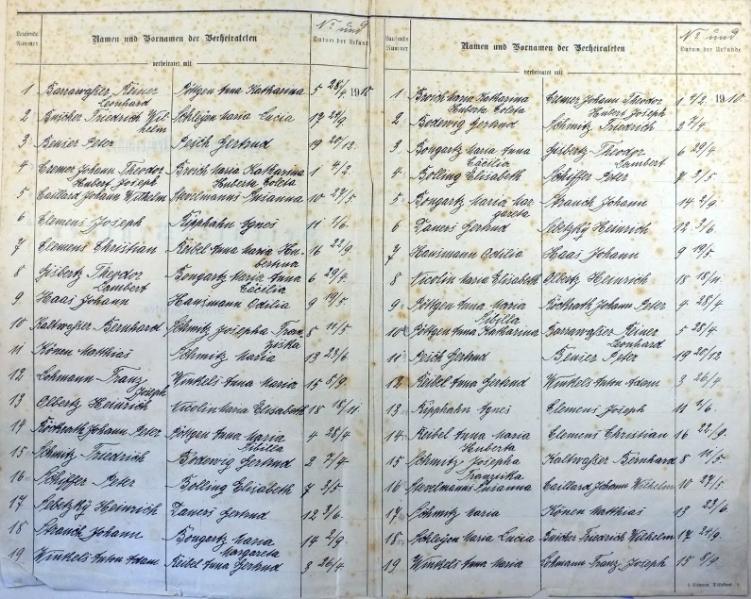 Laufende Nummer
Namen und Vornamen der Verheirateten
verheiratet mit
No und
Datum der Urkunde
1 Barrawaßer Reiner Leonhard Pöttgen Anna Katharina 5 28/4 1910
2 Buscher Friedrich Wilhelm Schlejen Maria Lucia 17 24/9.
3 Benier Peter Pesch Gertrud 19 20/12.
4 Cremer Johann Theodor Hubert Joseph Broich Maria Katharina Huberta Coleta 1 4/2.
5 Caillard Johann Wilhelm Stevelmanns Susanna 10 27/5
6 Clemens Joseph Kipphahn Agnes 11 2/6.
7 Clemens Christian Keibel Anna Maria Hubertina 16 22/9
8 Gisbertz Theodor Lambert Bongartz Maria Anna Cäcilia 6 29/4.
9 Haas Johann Hansmann Odilia 9 19/5.
10 Kaltwaßer Bernhard Schmitz Josepha Franziska 8 11/5
11 Könen Matthias Schmitz Maria 13 23/6
12 Lohmann Franz Joseph Winkels Anna Maria 15 8/9.
13 Olbertz Heinrich Nicolin Maria Elisabeth 18 18/11.
14 Röckrath Johann Peter Pöttgen Anna Maria Sibilla 4 28/4
15 Schmitz Friedrich Bodewig Gertrud 2 7/4.
16 Schiffer Peter Bolling Elisabeth 7 3/5
17 Heinrich Daners Gertrud 12 3/6.
18 Strauch Johann Bongartz Maria Margareta 14 2/9
19 Winkels Anton Adam Keibel Anna Gertrud 3 26/4
Laufende Nummer
Namen und Vornamen der Verheirateten
verheiratet mit
No und
Datum der Urkunde
1 Broich Maria Katharina Huberta Coleta Cremer Johann Theodor Hubert Joseph 1 4/2. 1910
2 Bodewig Gertrud Schmitz Friedrich 2 7/4.
3 Bongartz Maria Anna Cäcilia Gisbertz Theodor Lambert 6 29/4
4 Bolling Elisabeth Schiffer Peter 7 3/5
5 Bongartz Maria Margareta Strauch Johann 14 2/9.
6 Daners Gertrud Heinrich 12 3/6.
7 Hansmann Odilia Haas Johann 9 19/5
8 Nicolin Maria Elisabeth Olbertz Heinrich 18 18/11
9 Pöttgen Anna Maria Sibilla Röckrath Johann Peter 4 28/4
10 Pöttgen Anna Katharina Barrawaßer Reiner Leonhard 5 28/4
11 Pesch Gertrud Benier Peter 19 20/12
12 Keibel Anna Gertrud Winkels Anton Adam 3 26/4
13 Kipphahn Agnes Clemens Joseph 11 2/6.
14 Keibel Anna Maria Huberta Clemens Christian 16 22/9.
15 Schmitz Josepha Franziska Kaltwaßer Bernhard 8 11/5.
16 Stevelmanns Susanna Caillard Johann Wilhelm 10 27/5
17 Schmitz Maria Könen Matthias 13 23/6
18 Schlejen Maria Lucia Buscher Friedrich Wilhelm 17 24/9.
19 Winkels Anna Maria Lohmann Franz Joseph 15 8/9.